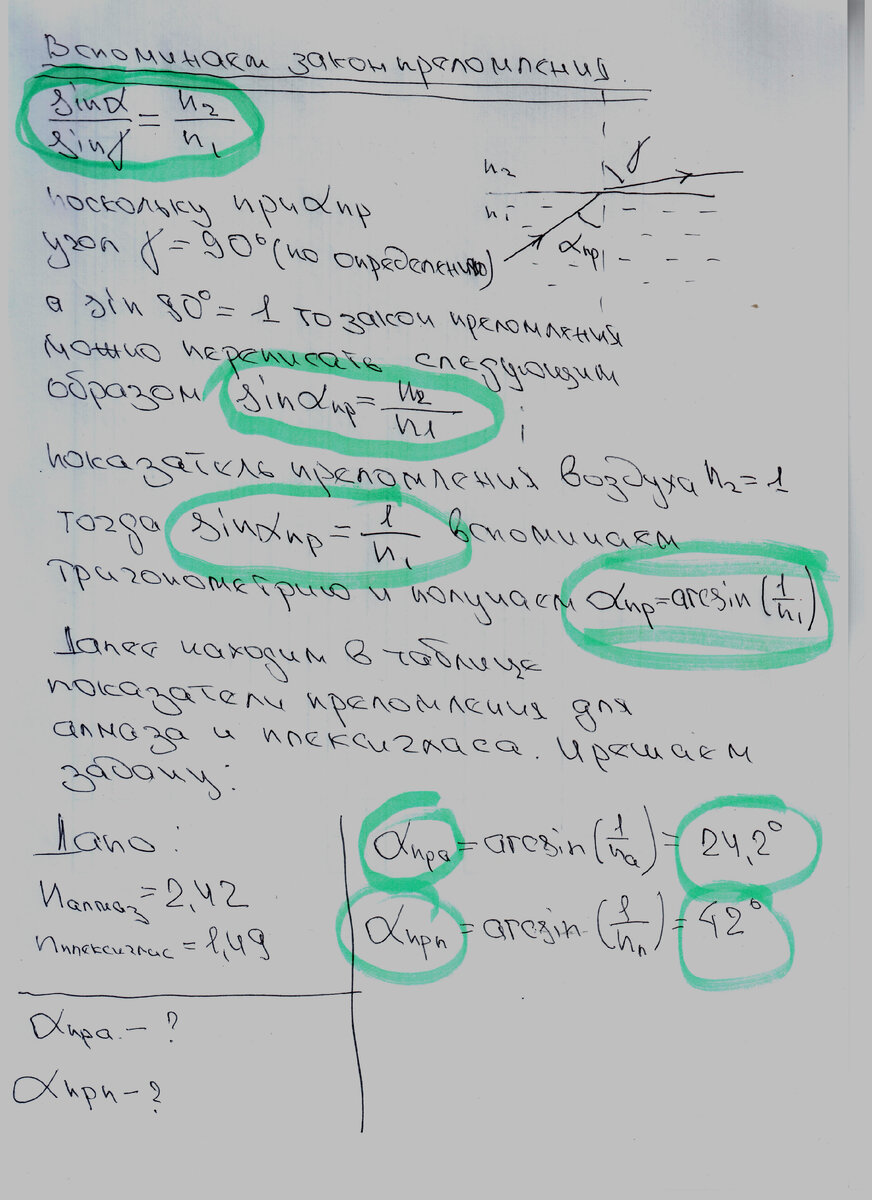 Вспоминаем закон преломления.
sinα/sinγ = n₂/n₁
n₂
γ
n₁
αпр
поскольку при αпр
угол γ = 90° (по определению)
а sin 90° = 1 то закон преломления
можно переписать следующим
образом sinαпр = n₂/n1 ;
показатель преломления воздуха n₂ = 1
тогда sinαпр = 1/n₁ вспоминаем
тригонометрию и получаем αпр = arcsin (1/n₁)
Далее находим в таблице
показатели преломления для
алмаза и плексигласа. И решаем
задачу:
Дано:
nалмаз = 2,42
nплексиглас = 1,49
αпра – ?
αпрп – ?
αпра = arcsin (1/nа) = 24,2°
αпрп = arcsin (1/nп) = 42°